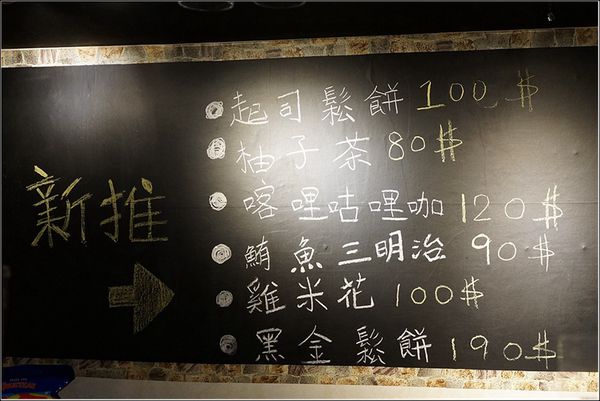 新推
起司鬆餅 100$
柚子茶 80$
喀哩咕哩咖 120$
鮪魚三明治 90$
雞米花 100$
黑金鬆餅 190$